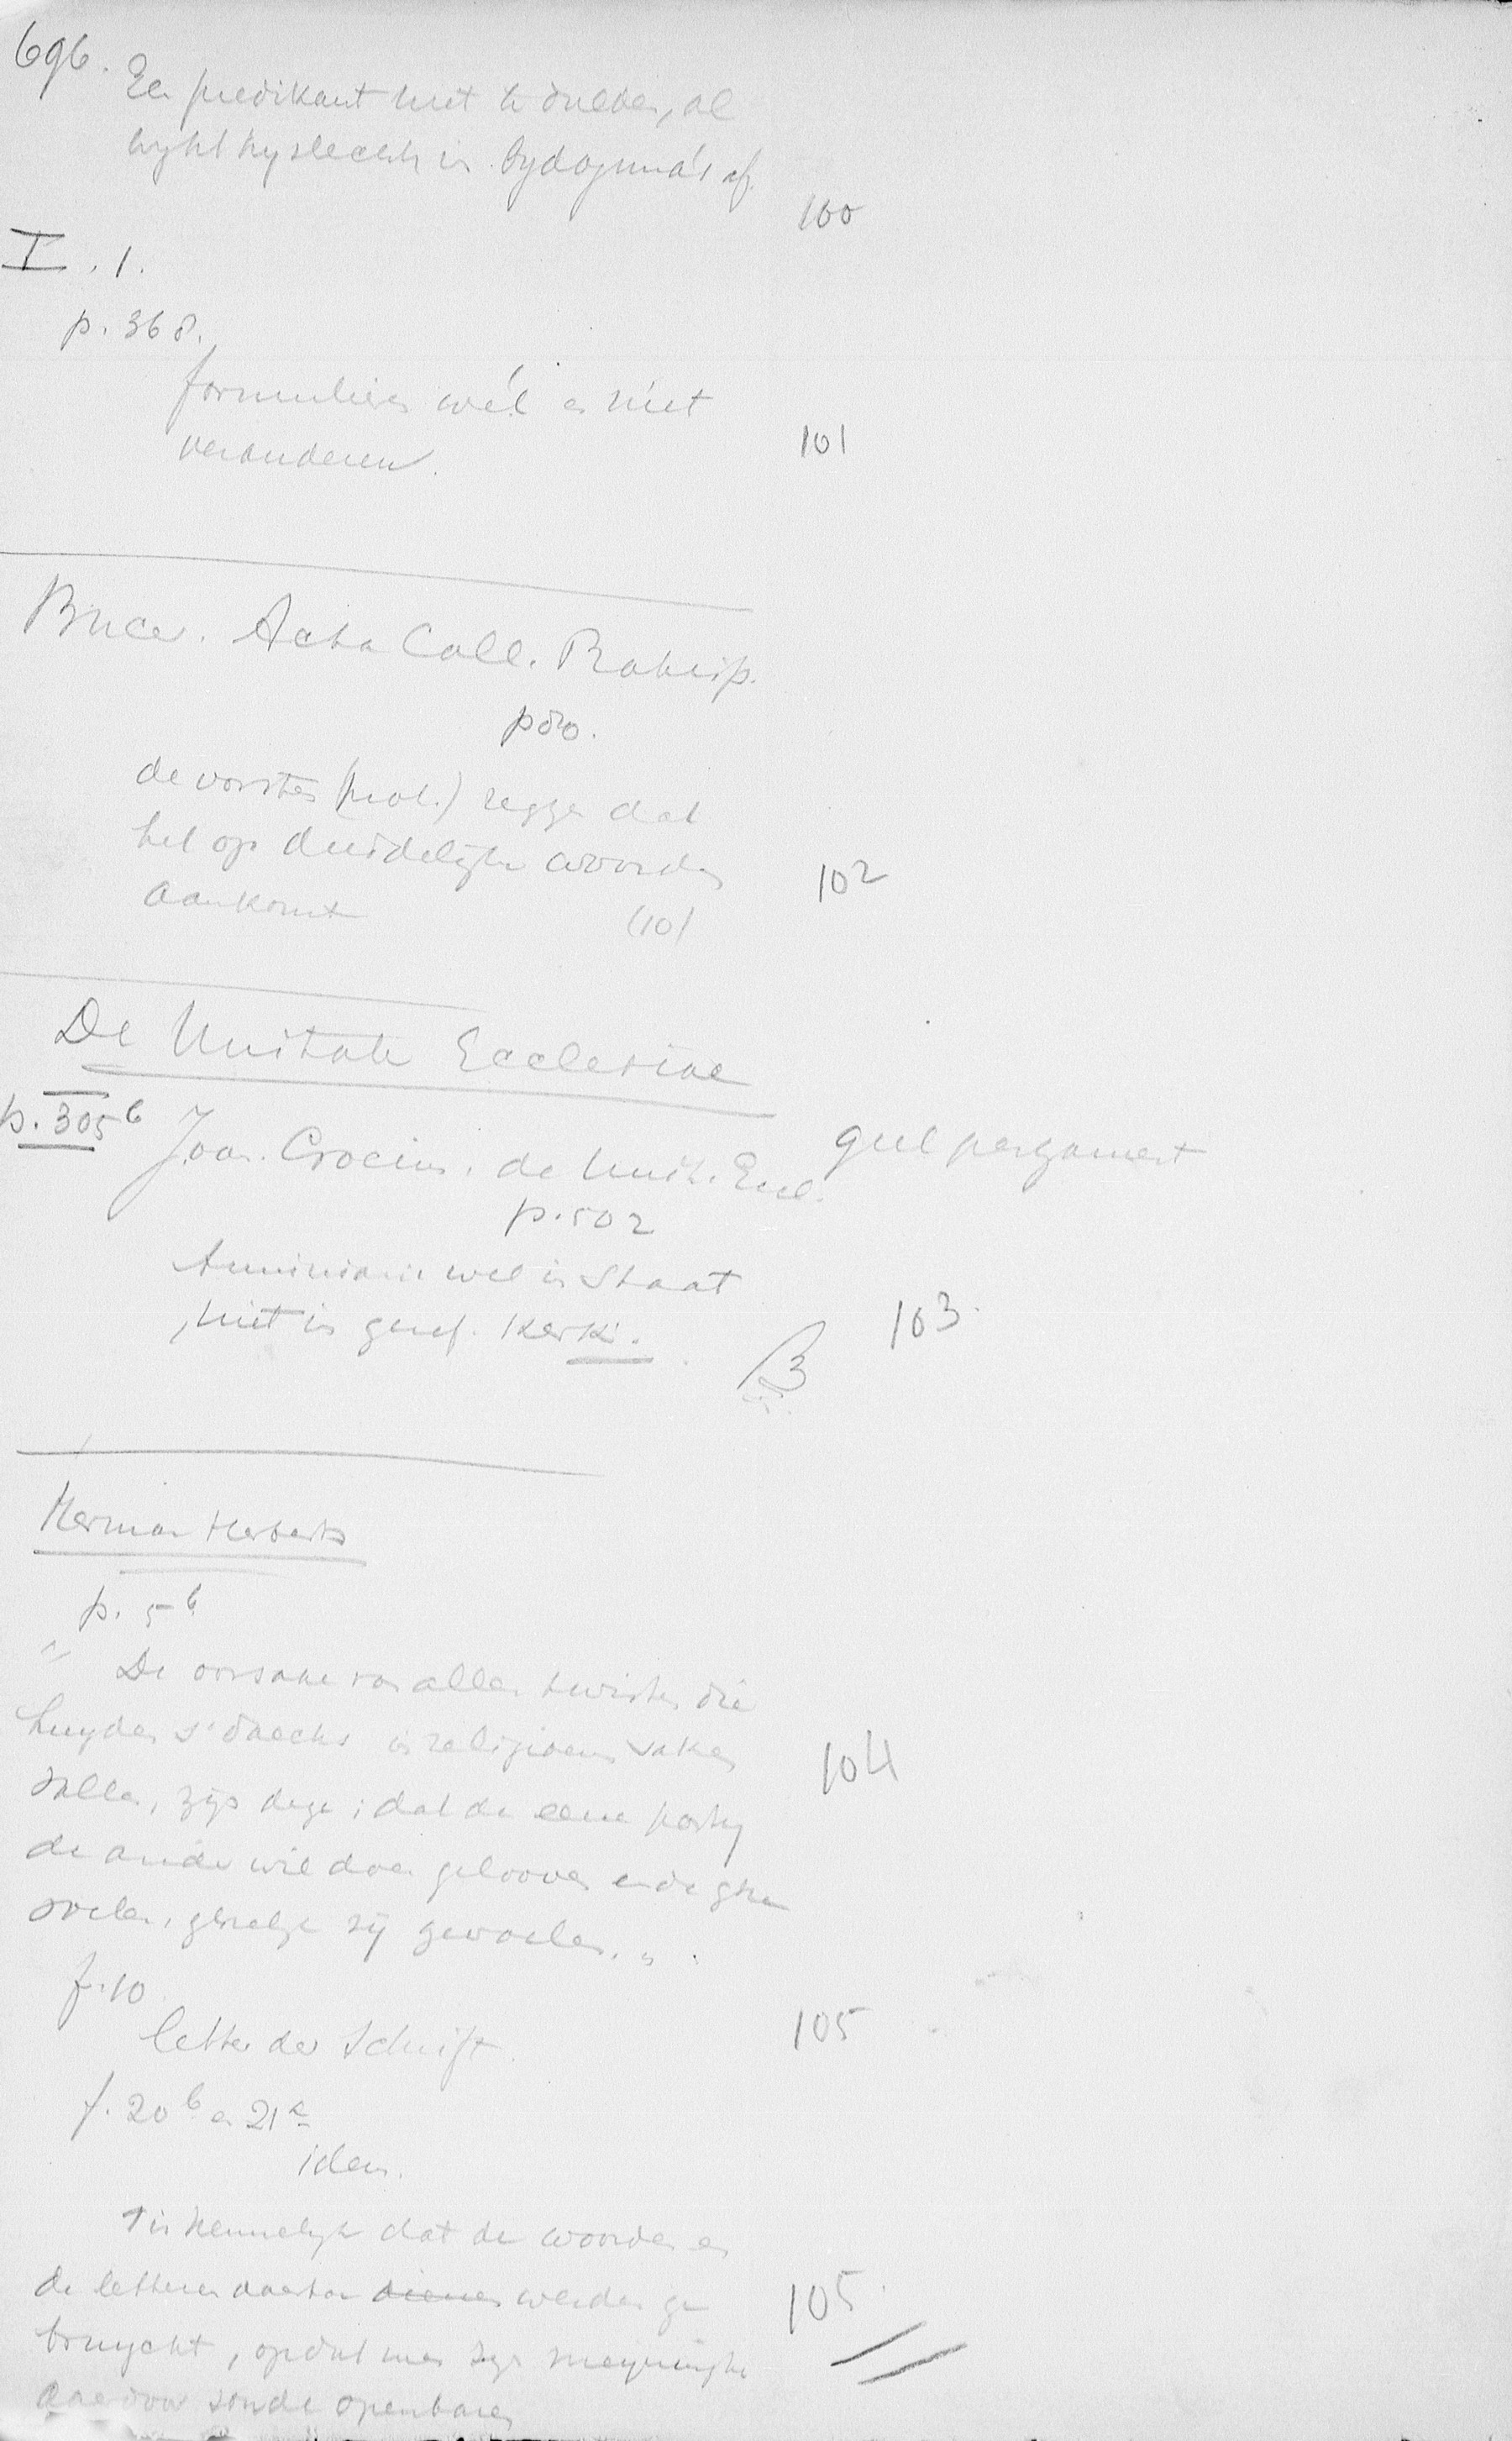 696.
Een predikant niet te dulden, al
wykt hy slechts in bydogma's af.
100
I. 1.
p. 368.
formulieren wél en niet
veranderen.
101
Bucer. Acta Coll. Ratisp.
p 80.
de vorsten (prot.) zeggen dat
het op duidelijke woorden
aankomt (10)
102
De Unitate Ecclesiae
p. 305b Joan. Crocius. de Unit. Eccl.
geel pergament
p. 502
Arminianen wel in Staat
, niet in geref. Kerk.
103.
B
Herman Herberts
p. 5b
" De oorsake van allen twisten die
huyden s'daechs in religioens saken
vallen, zijn dese; dat de eene party
104
de ander wil doen gelooven ende
voelen, gelyck sij gevoelen. "
f. 10
letter der Schrift.
105
f. 20b en 21a
idem.
't is kennelyk dat de woorden en
de letteren daertoe dienen werden ge
bruyckt, opdat men zyn meyninghe
105
daerdoor soude openbaren